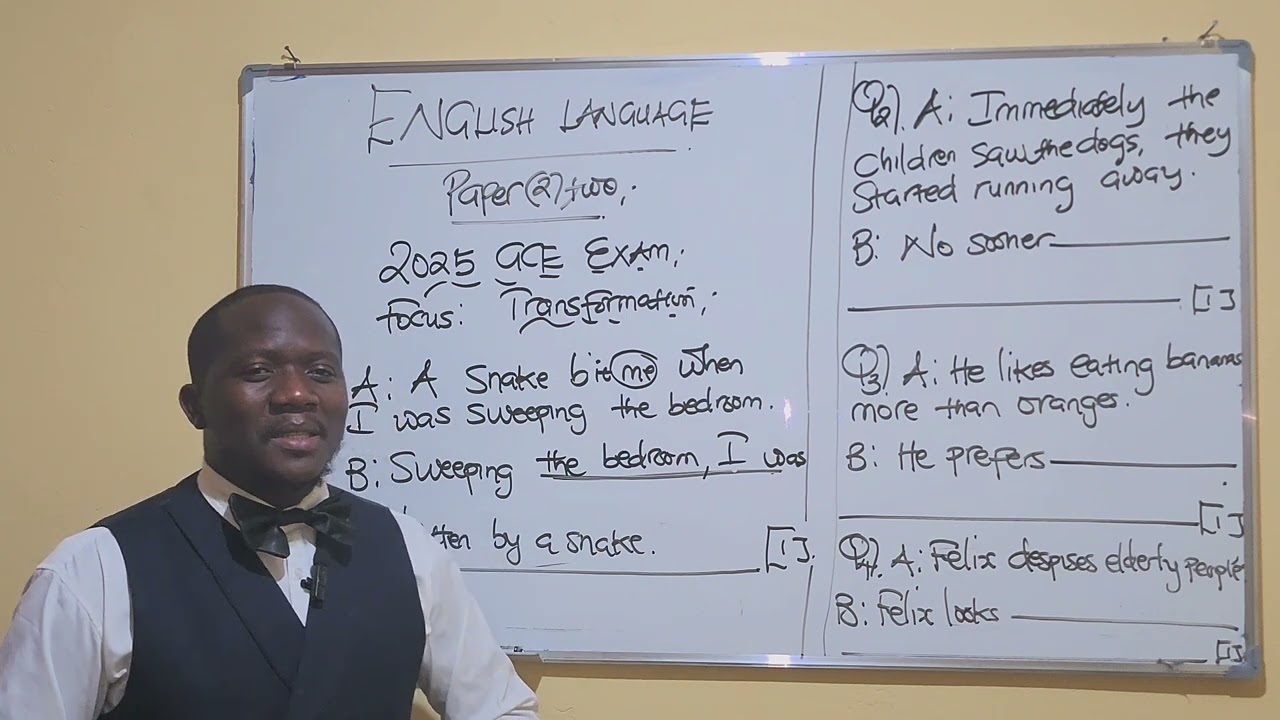 ENGLISH LANGUAGE
Paper (2) two;
2025 GCE Exam;
Focus: Transformation;
A: A Snake bite me when
I was sweeping the bedroom.
B: Sweeping the bedroom, I was
tten by a snake. [1].
Q2). A: Immediately the
Children saw the dogs, they
Started running away.
B: No sooner
[1]
Q3) A: He likes eating bananas
more than oranges.
B: He prefers
[1]
Q4). A: Felix despises elderly people
B: Felix looks
[1]